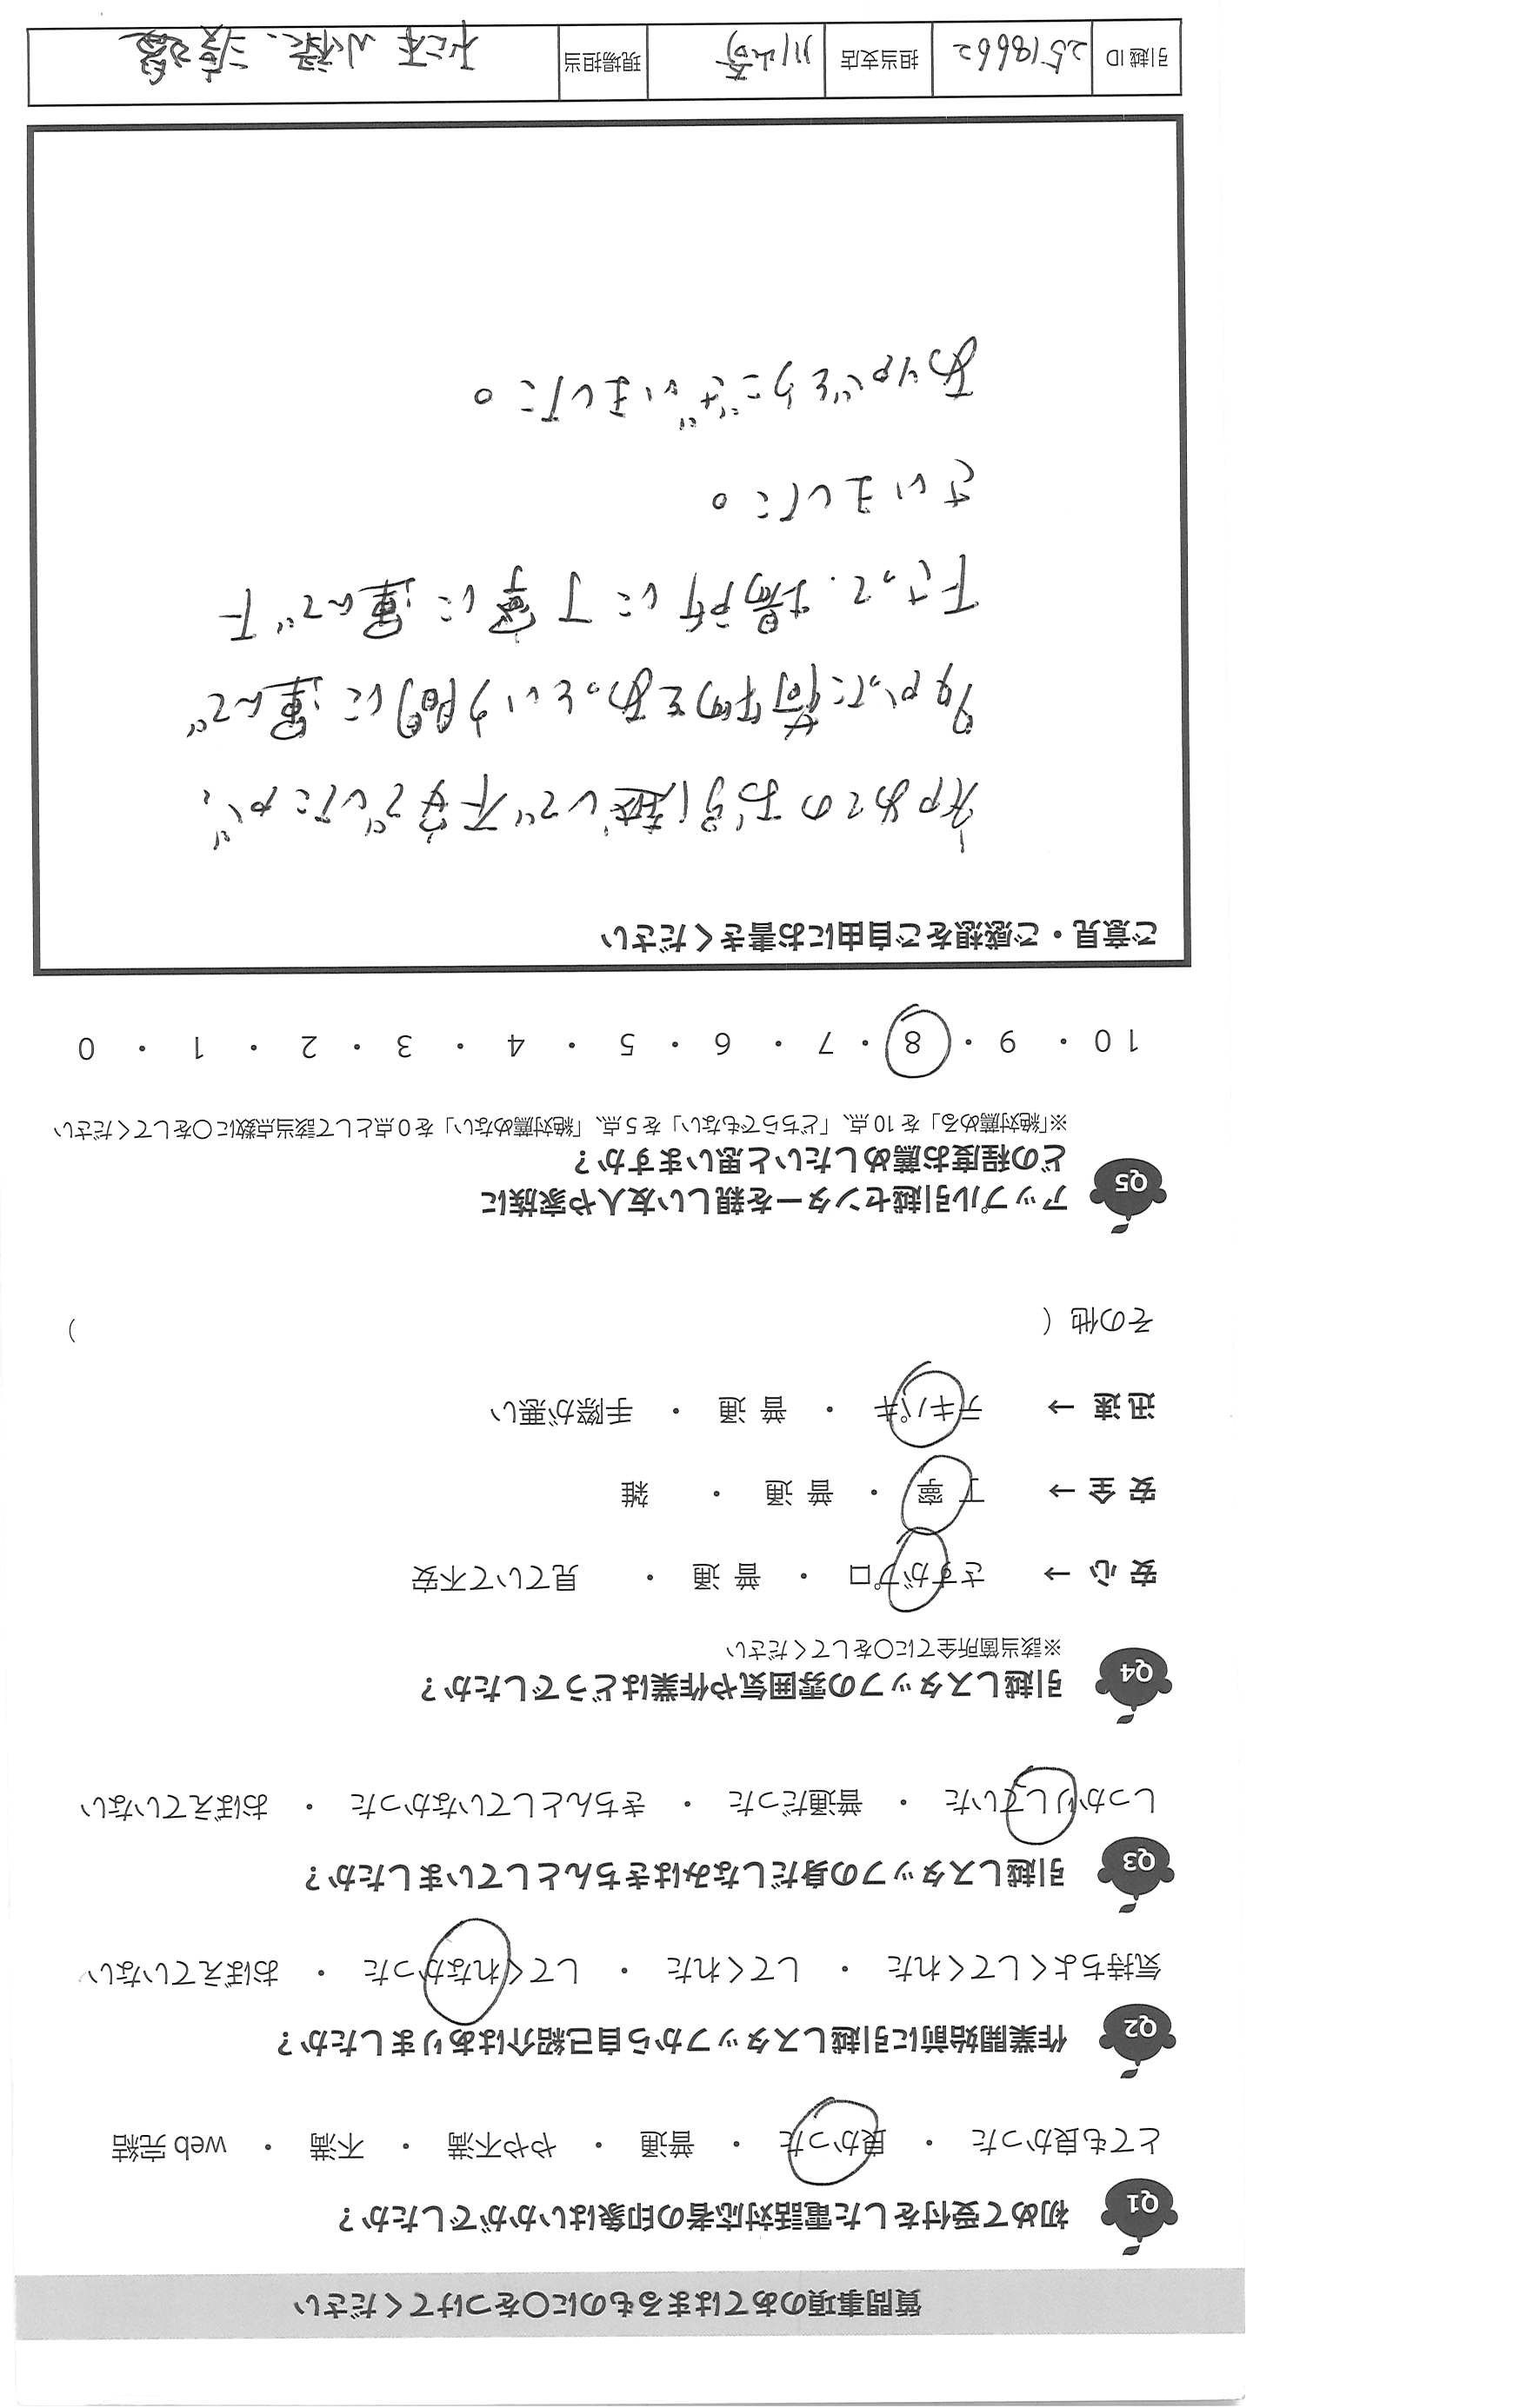 質問事項のあてはまるものに〇をつけてください
Q1 初めて受付をした電話対応者の印象はいかがでしたか？
とても良かった ・ 良かった ・ 普通 ・ やや不満 ・ 不満 ・ web 完結
Q2 作業開始前に引越しスタッフから自己紹介はありましたか？
気持ちよくしてくれた ・ してくれた ・ してくれなかった ・ おぼえていない
Q3 引越しスタッフの身だしなみはきちんとしていましたか？
しっかりしていた ・ 普通だった ・ きちんとしていなかった ・ おぼえていない
Q4 引越しスタッフの雰囲気や作業はどうでしたか？
※該当箇所全てに〇をしてください
安 心 → さすがプロ ・ 普 通 ・ 見ていて不安
安 全 → 丁 寧 ・ 普 通 ・ 雑
迅 速 → テキパキ ・ 普 通 ・ 手際が悪い
その他（ ）
Q5 アップル引越センターを親しい友人や家族に
どの程度お薦めしたいと思いますか？
※「絶対薦める」を 10 点、「どちらでもない」を 5 点、「絶対薦めない」を 0 点として該当点数に〇をしてください
10 ・ 9 ・ 8 ・ 7 ・ 6 ・ 5 ・ 4 ・ 3 ・ 2 ・ 1 ・ 0
ご意見・ご感想をご自由にお書きください
初めてのお引越しで不安でしたが、
多かった荷物をあっという間に運んで
下さって、場所に丁寧に運んで下
さいました。
ありがとうございました。
引越 ID 2518662 担当支店 川崎 現場担当 松本 小松、渡邉